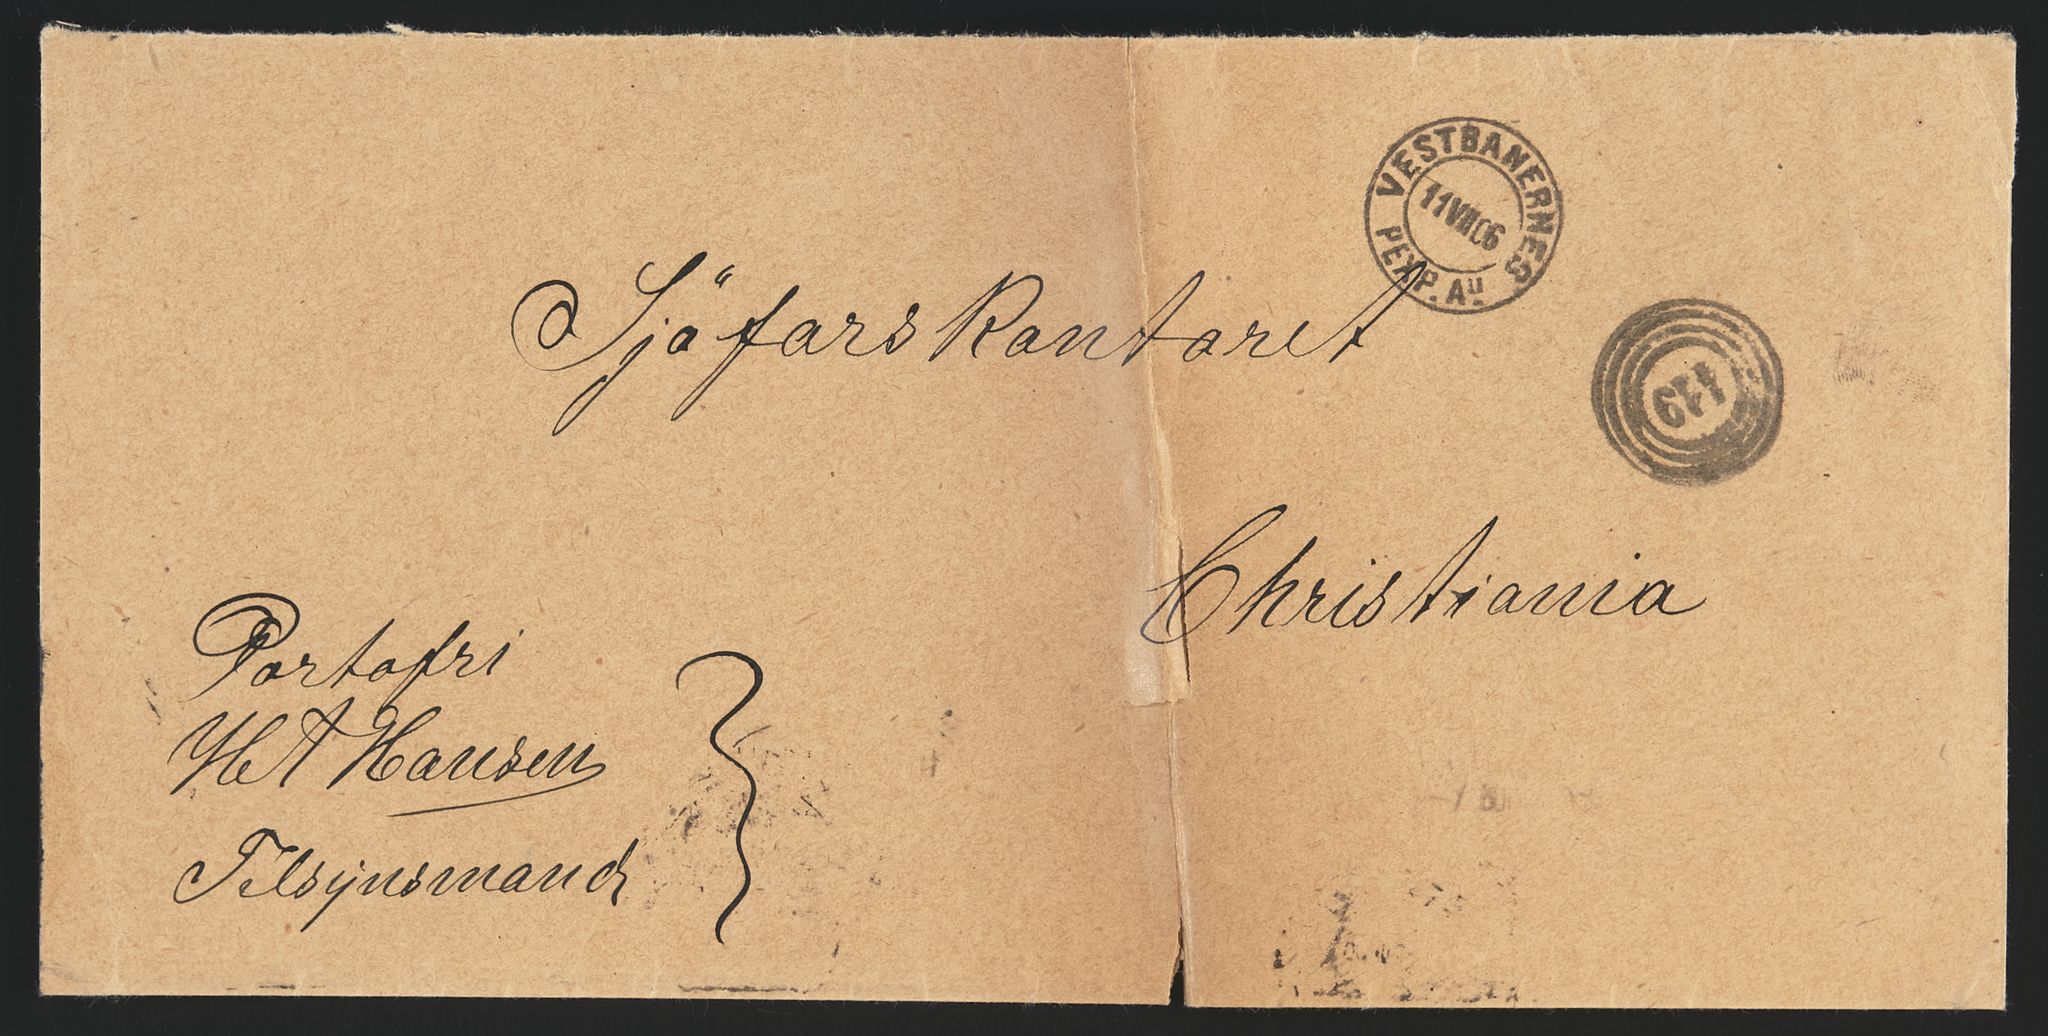 VESTBANERNES
PEXP. AU
11 VII 06
Sjöfarskontoret
419
Christiania
Portofri
H A Hansen
Tilsynsmand